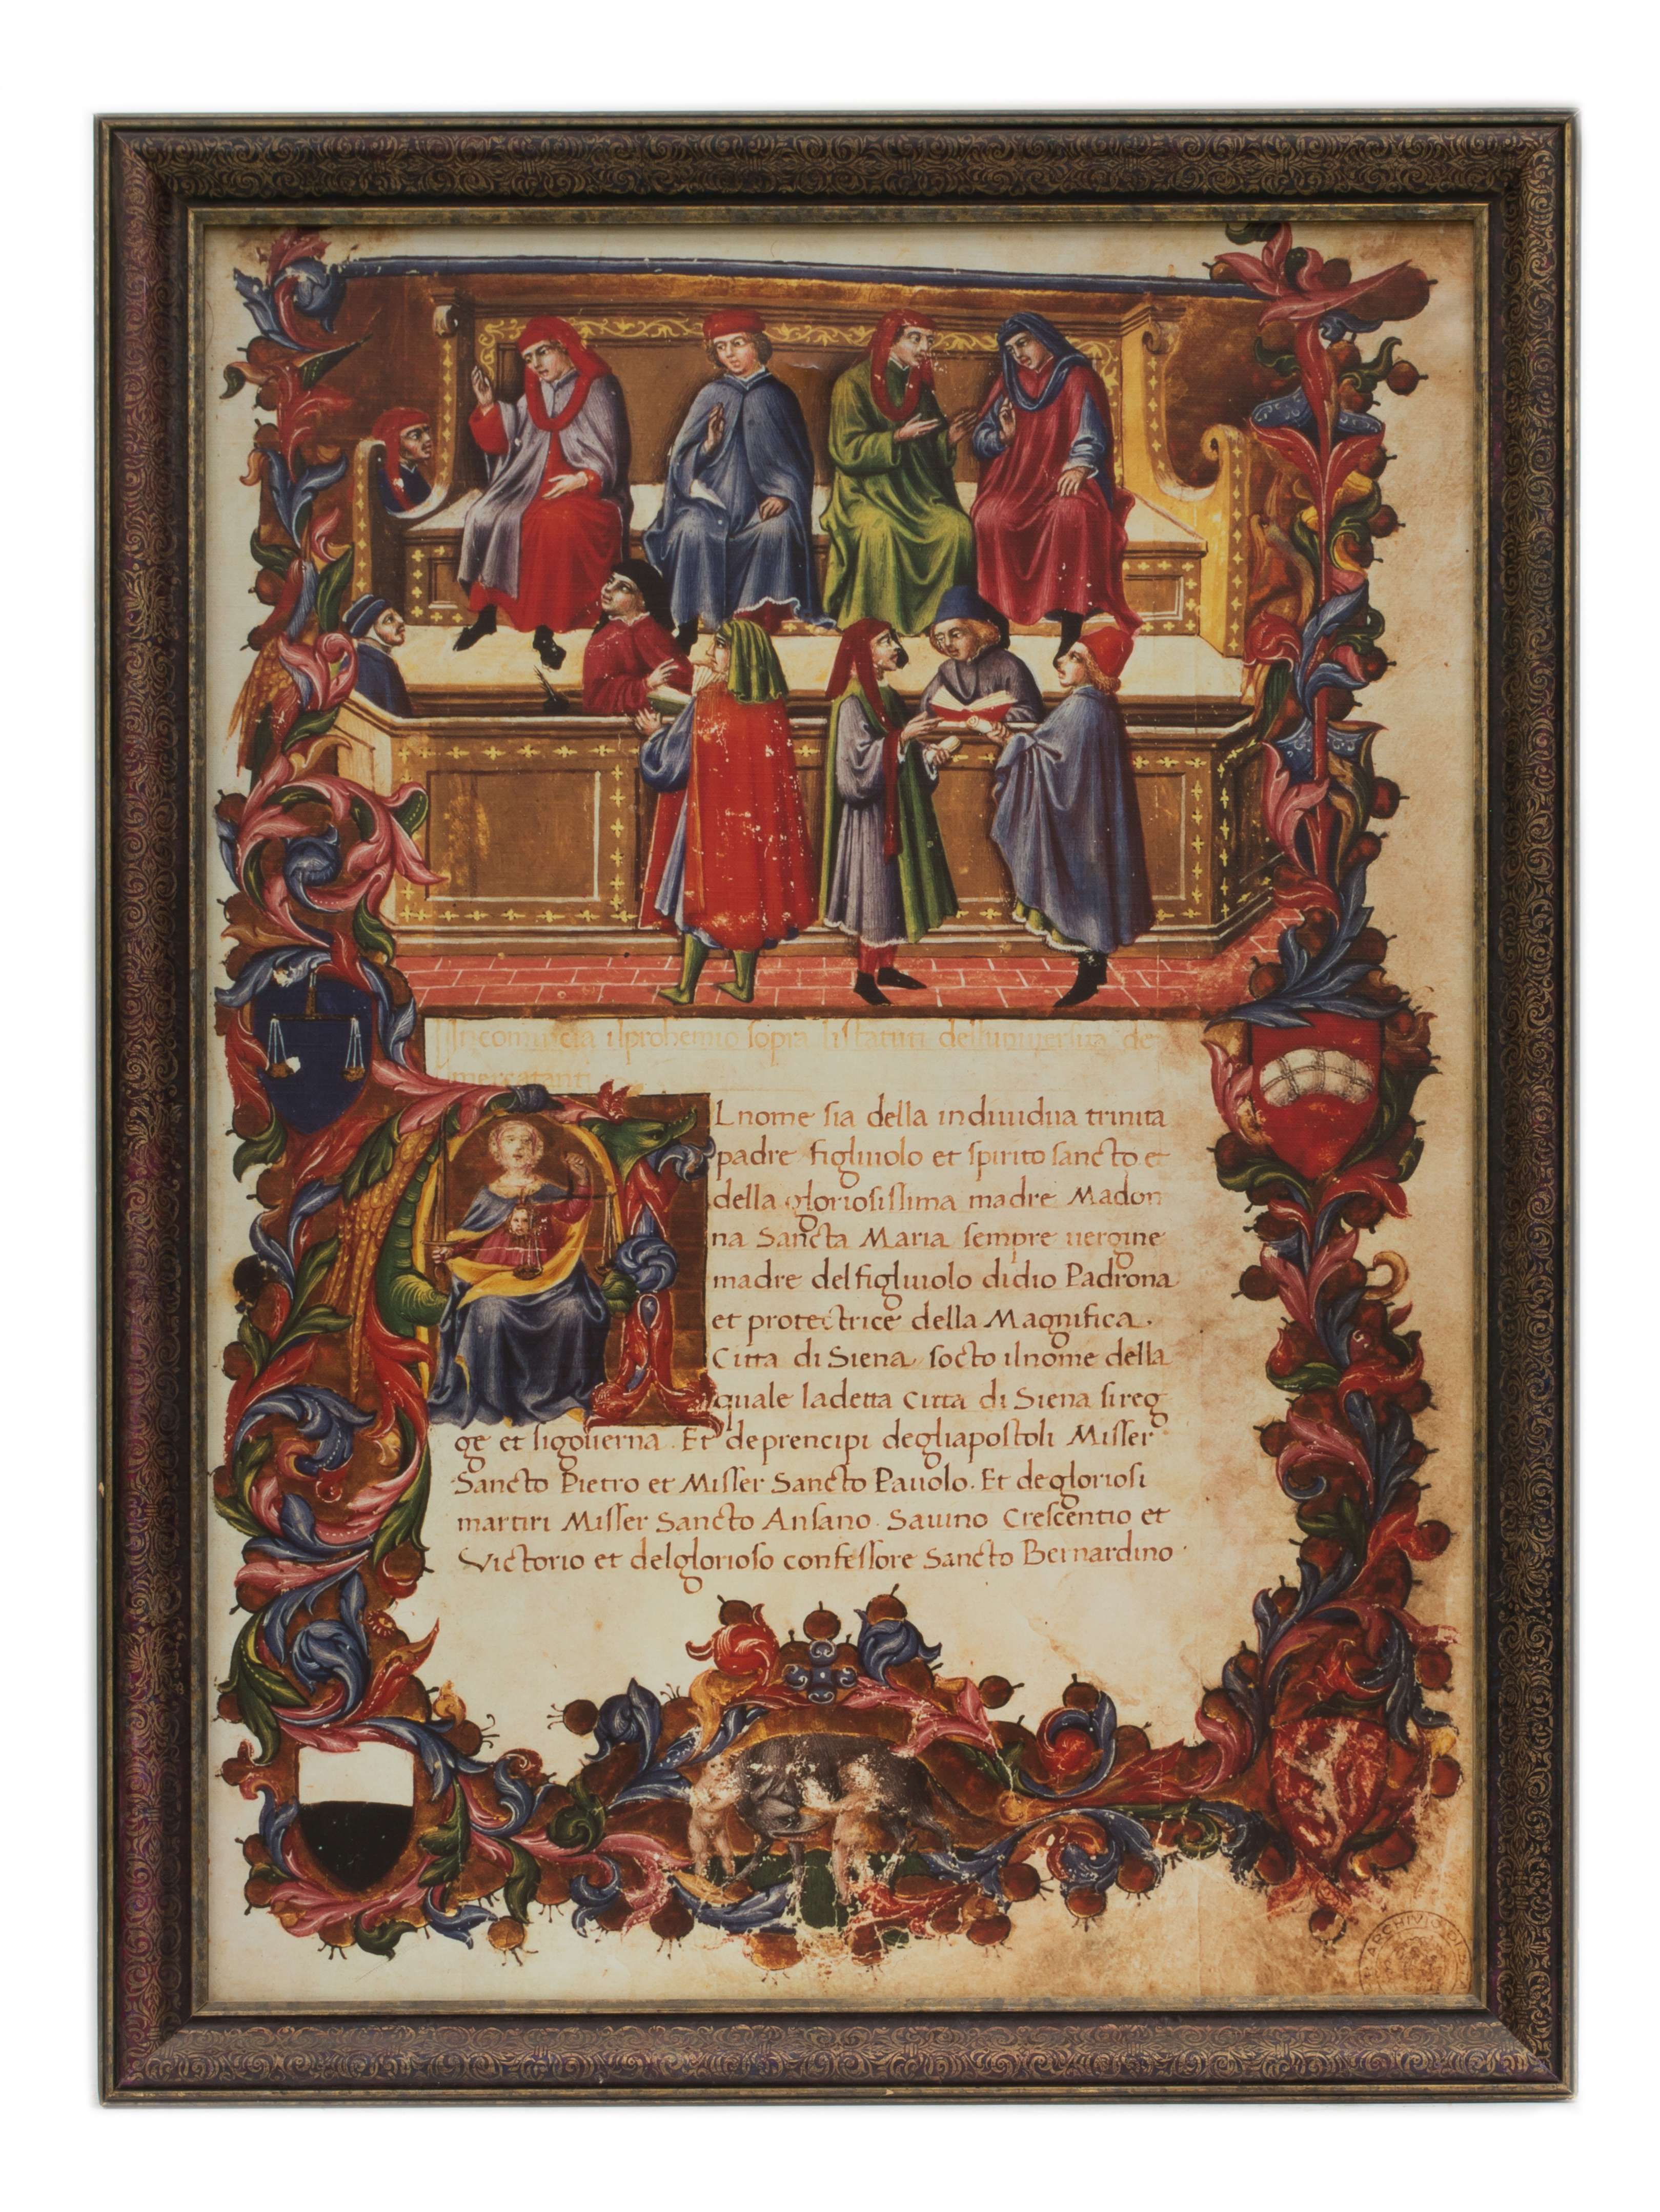 Incomincia ilprohemio sopra listatuti delluniuersita de
mercatanti
ALnome sia della indiuidua trinita
padre figliuolo et spirito sancto et
della gloriosissima madre Madon
na Sancta Maria sempre uergine
madre delfigliuolo didio Padrona
et protectrice della Magnifica
Citta di Siena socto ilnome della
quale ladetta Citta di Siena sireg
ge et sigouerna. Et deprencipi degliapostoli Misser
Sancto Pietro et Misser Sancto Pauolo. Et degloriosi
martiri Misser Sancto Ansano. Sauino Crescentio et
Victorio et delglorioso confessore Sancto Bernardino
ARCHIVIO DI S